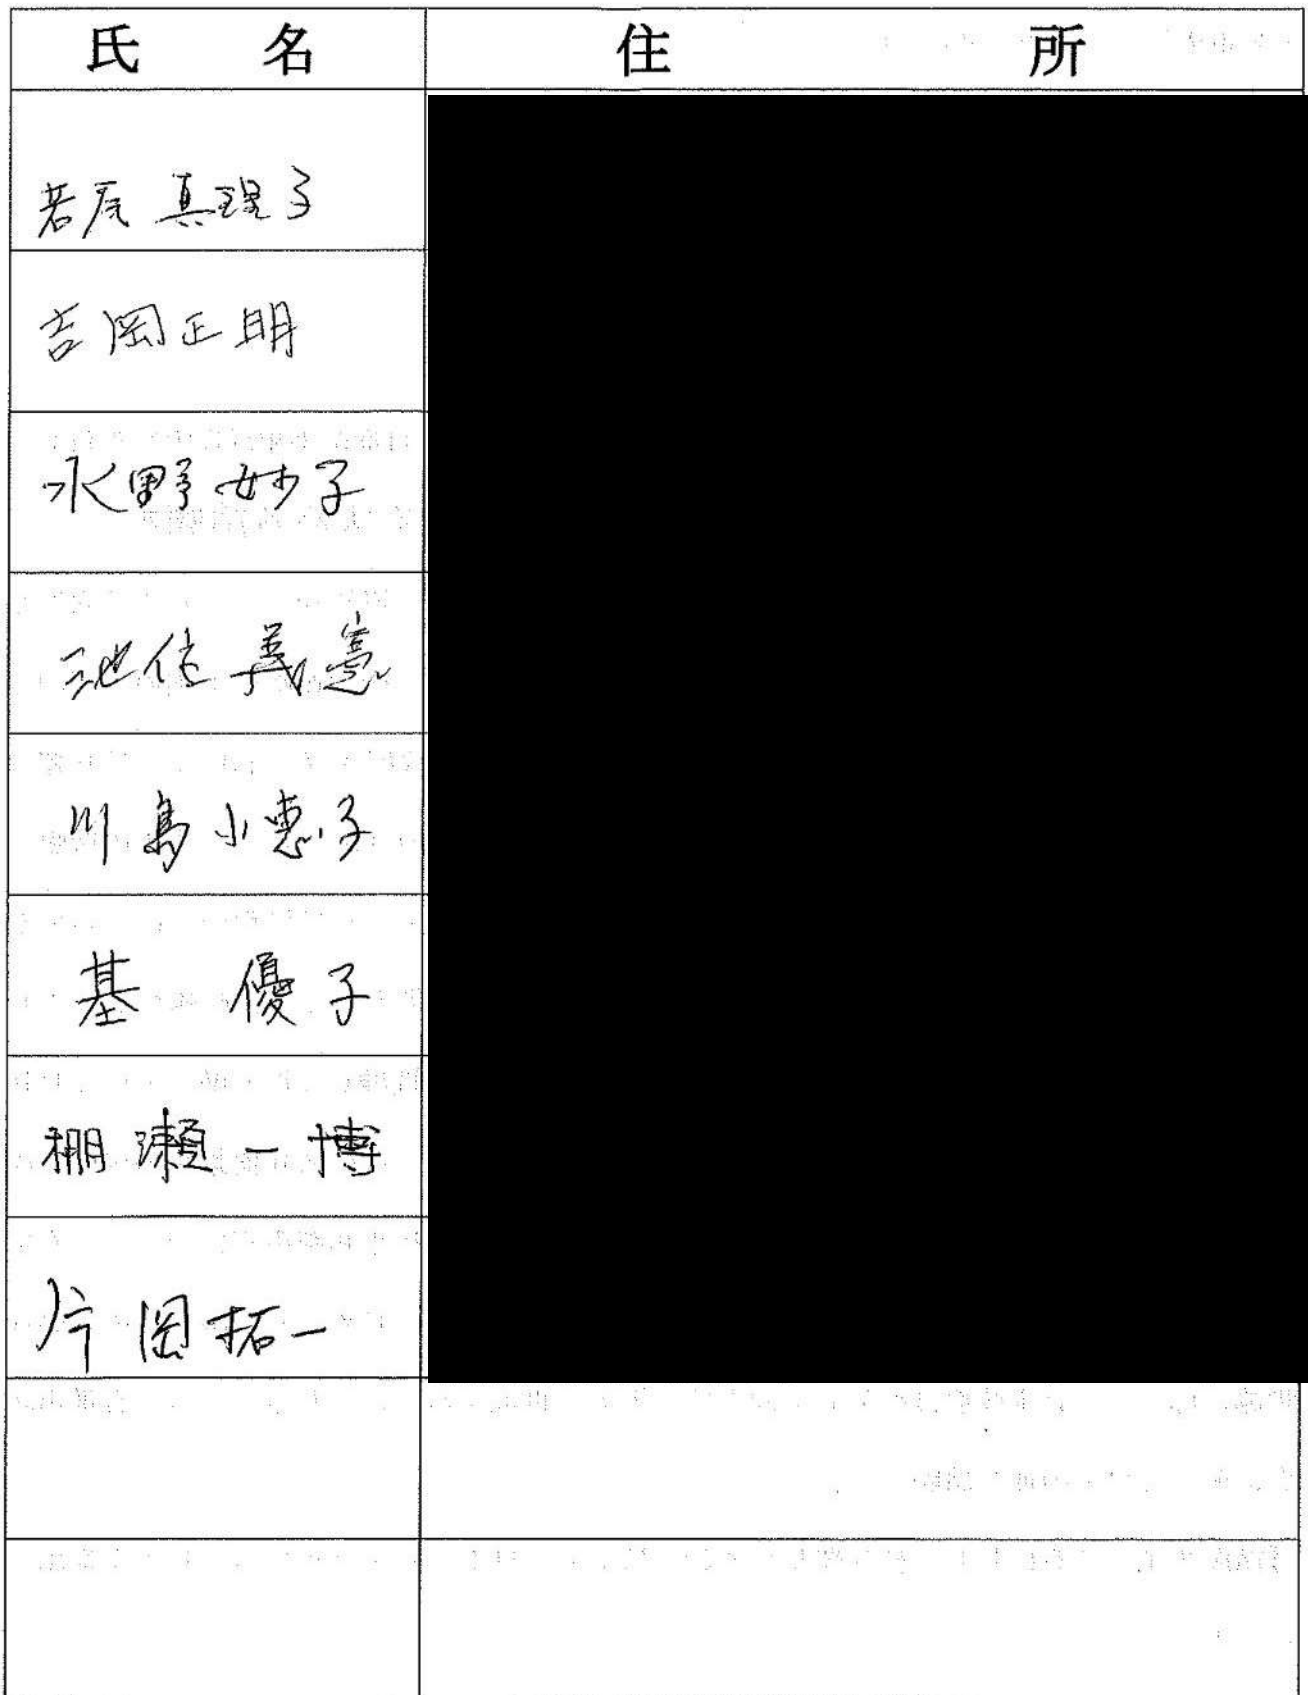 氏 名 住 所
若尾 真理子
吉岡正明
水野妙子
池住義憲
川島小恵子
基 優子
棚瀬一博
片岡拓一